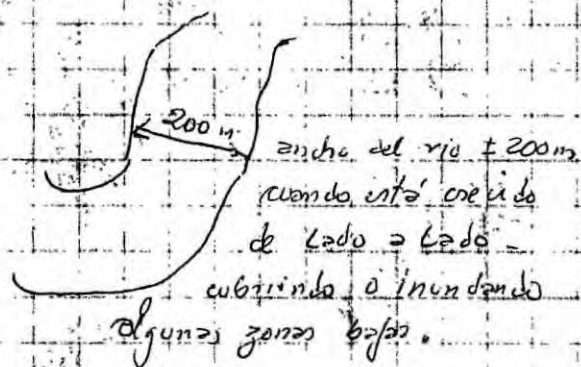 200 m
ancho del rio ± 200 m
cuando está crecido
de lado a lado -
cubriendo o inundando
algunas zonas bajas.